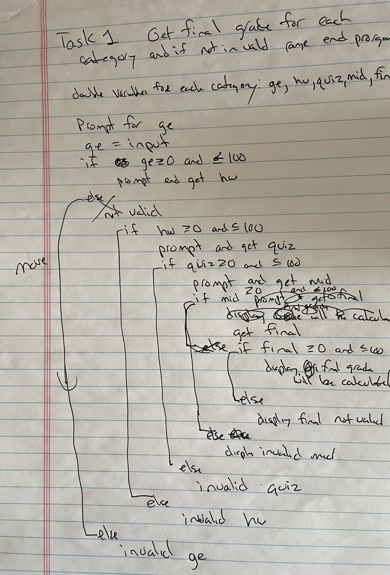 Task 1 Get final grade for each
category and if not in valid range end program
double variables for each category: ge, hw, quiz, mid, fin
Prompt for ge
ge = input
if ge ≥ 0 and ≤ 100
prompt and get hw
else
not valid
move
if hw ≥ 0 and ≤ 100
prompt and get quiz
if quiz ≥ 0 and ≤ 100
prompt and get mid
if mid ≥ 0 and ≤ 100
prompt get final
display will be calculat
get final
else if final ≥ 0 and ≤ 100
display final grade
will be calculated
else
display final not valid
else
disph invalid mid
else
invalid quiz
else
invalid hw
else
invalid ge